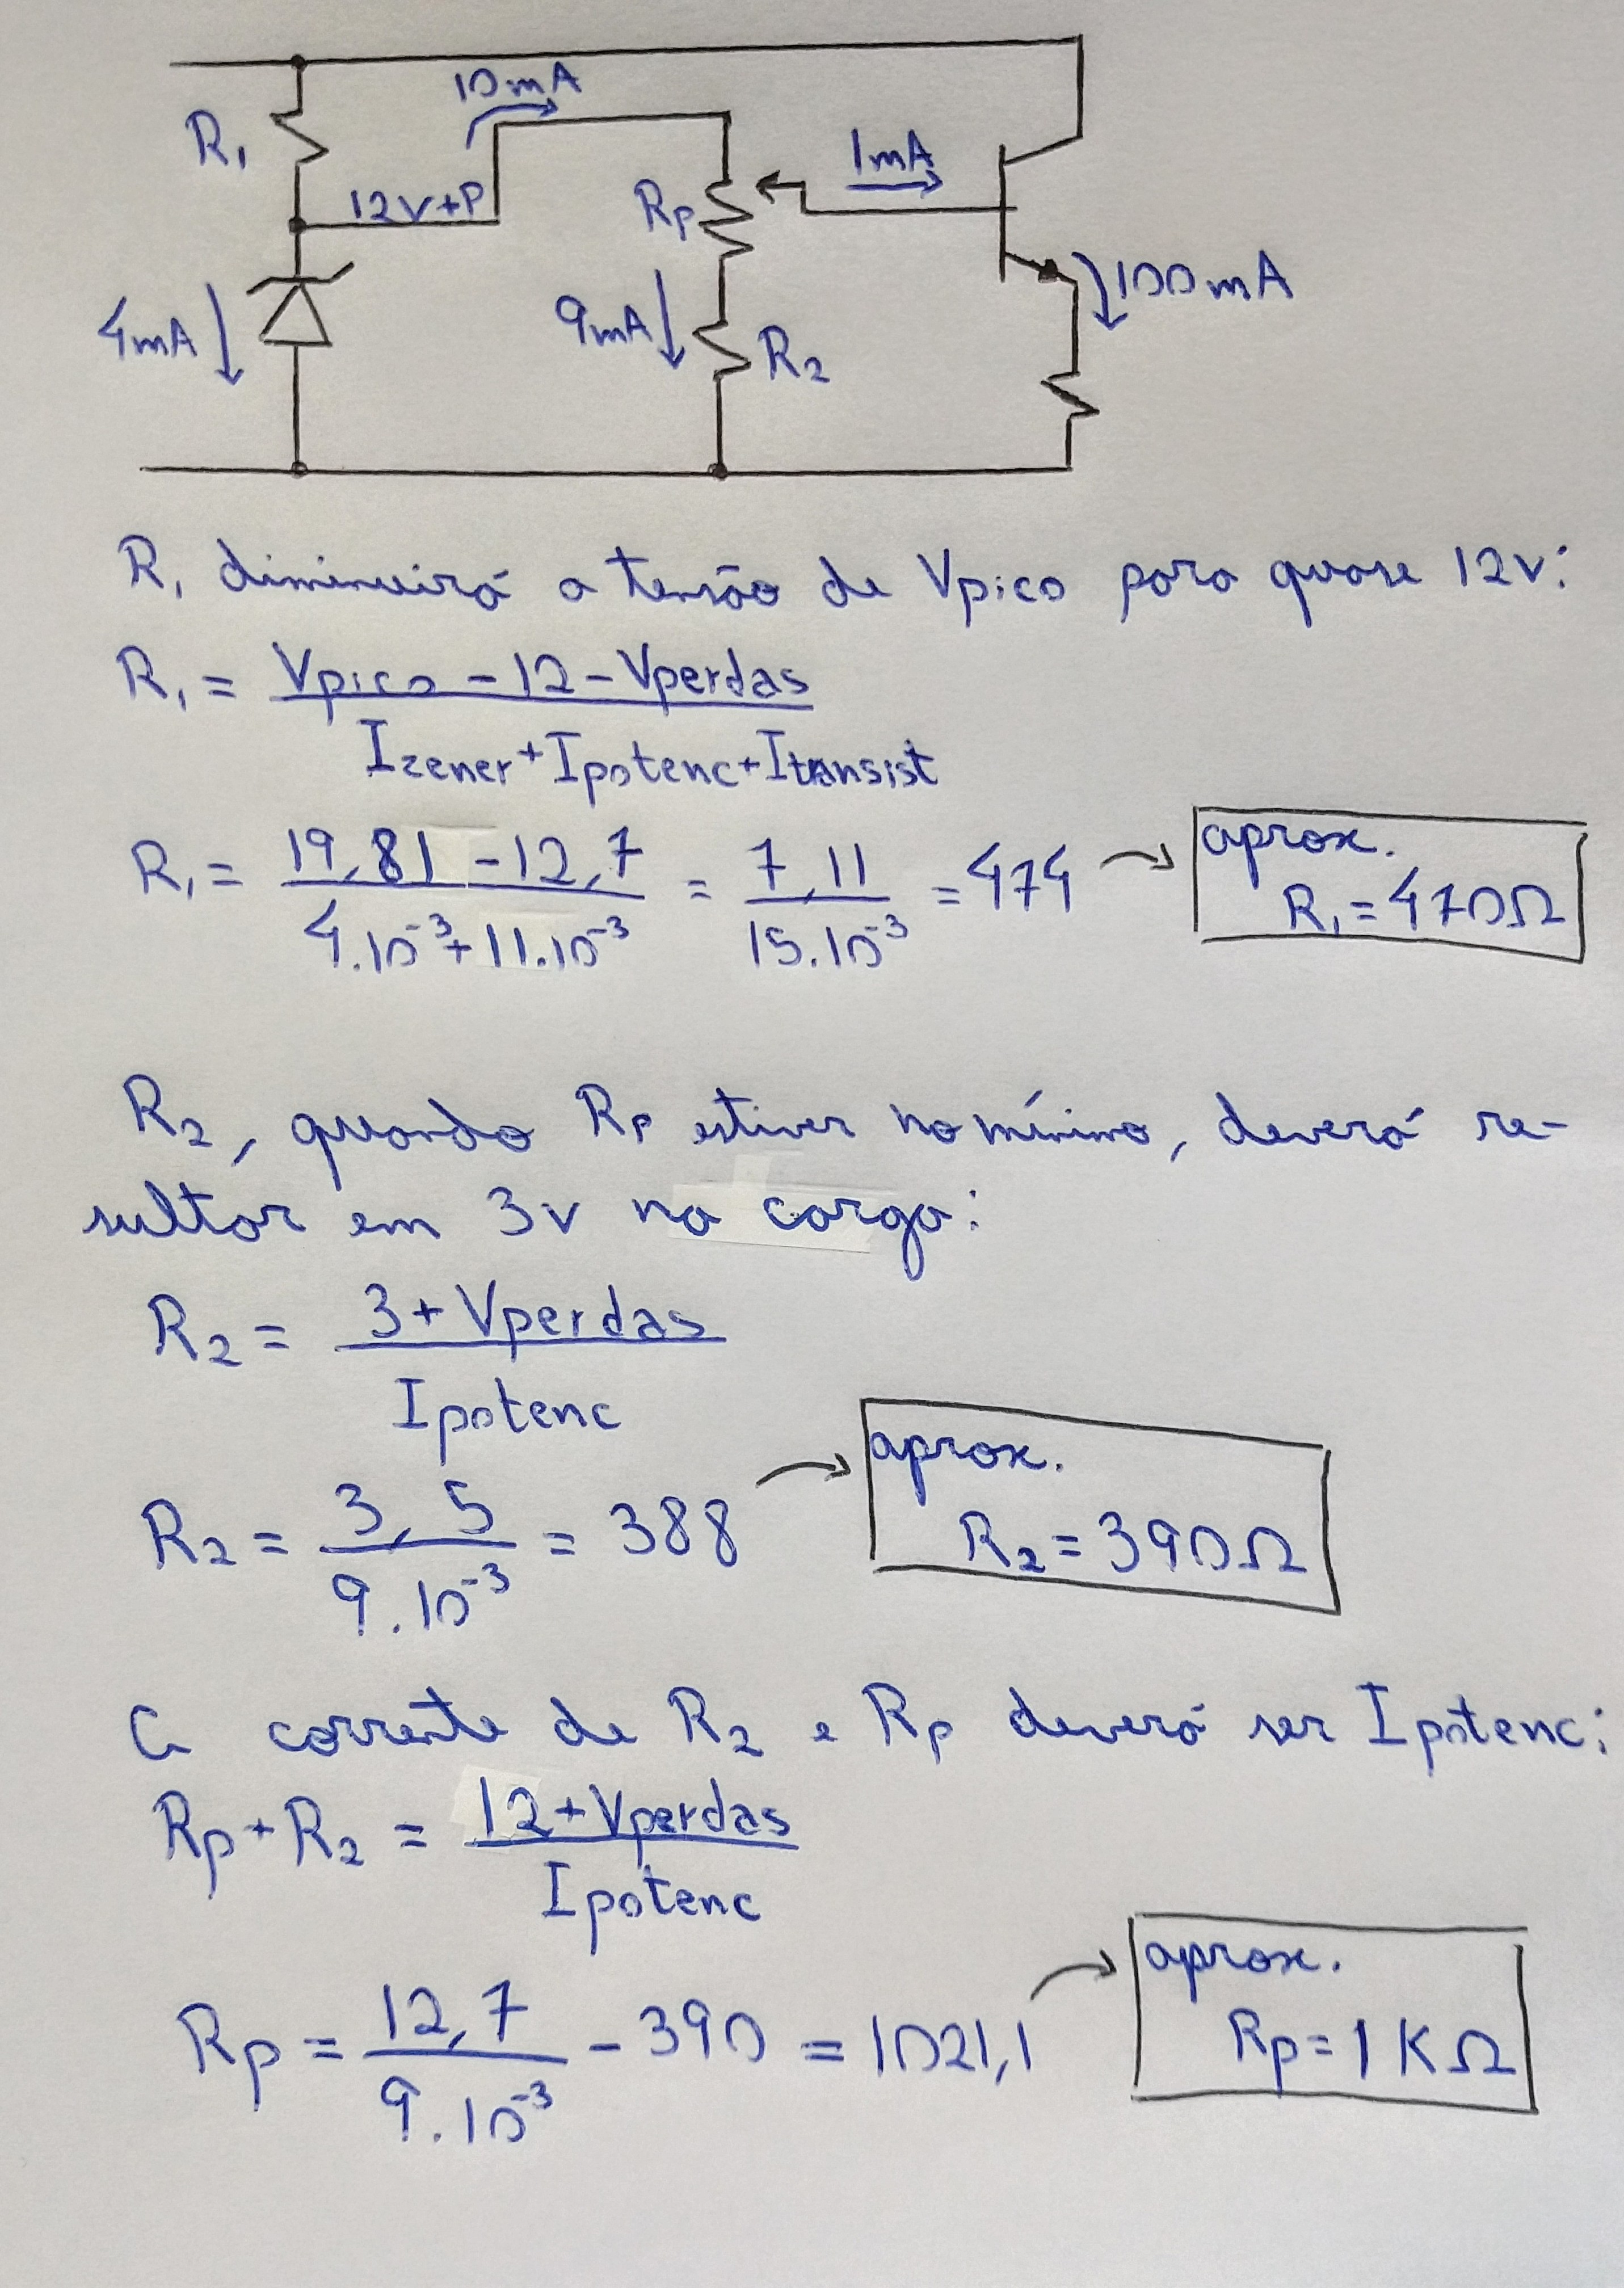 10mA
R₁
1mA
12V+P
Rp
100mA
4mA
9mA
R₂
R₁ diminuirá a tensão de Vpico para quase 12v:
R₁ = Vpico - 12 - Vperdas
Izener + Ipotenc + Itransist
R₁ = 19,81 - 12,7 = 7,11 = 474 → aprox.
4.10⁻³ + 11.10⁻³ 15.10⁻³ R₁ = 470Ω
R₂, quando Rp estiver no mínimo, deverá re-
sultar em 3v na carga:
R₂ = 3 + Vperdas
Ipotenc
R₂ = 3,5 = 388 → aprox.
9.10⁻³ R₂ = 390Ω
A corrente de R₂ e Rp deverá ser Ipotenc:
Rp + R₂ = 12 + Vperdas
Ipotenc
Rp = 12,7 - 390 = 1021,1 → aprox.
9.10⁻³ Rp = 1KΩ